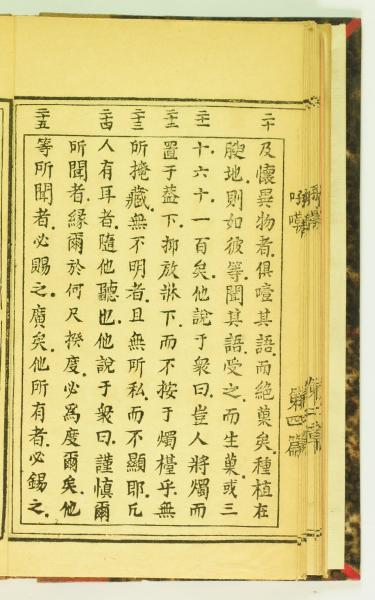 二十
及懷異物者俱噎其語而絕菓矣種植在
腴地則如彼等聞其語受之而生菓或三
二一
十六十一百矣他說于衆曰豈人將燭而
二二
置于葢下抑放牀下而不按于燭檯乎無
二三
所掩藏無不明者且無所私而不顯耶凡
二四
人有耳者隨他聽也他說于衆曰謹慎爾
所聞者緣爾於何尺揆度必為度爾矣他
二五
等所聞者必賜之廣矣他所有者必錫之
第四篇